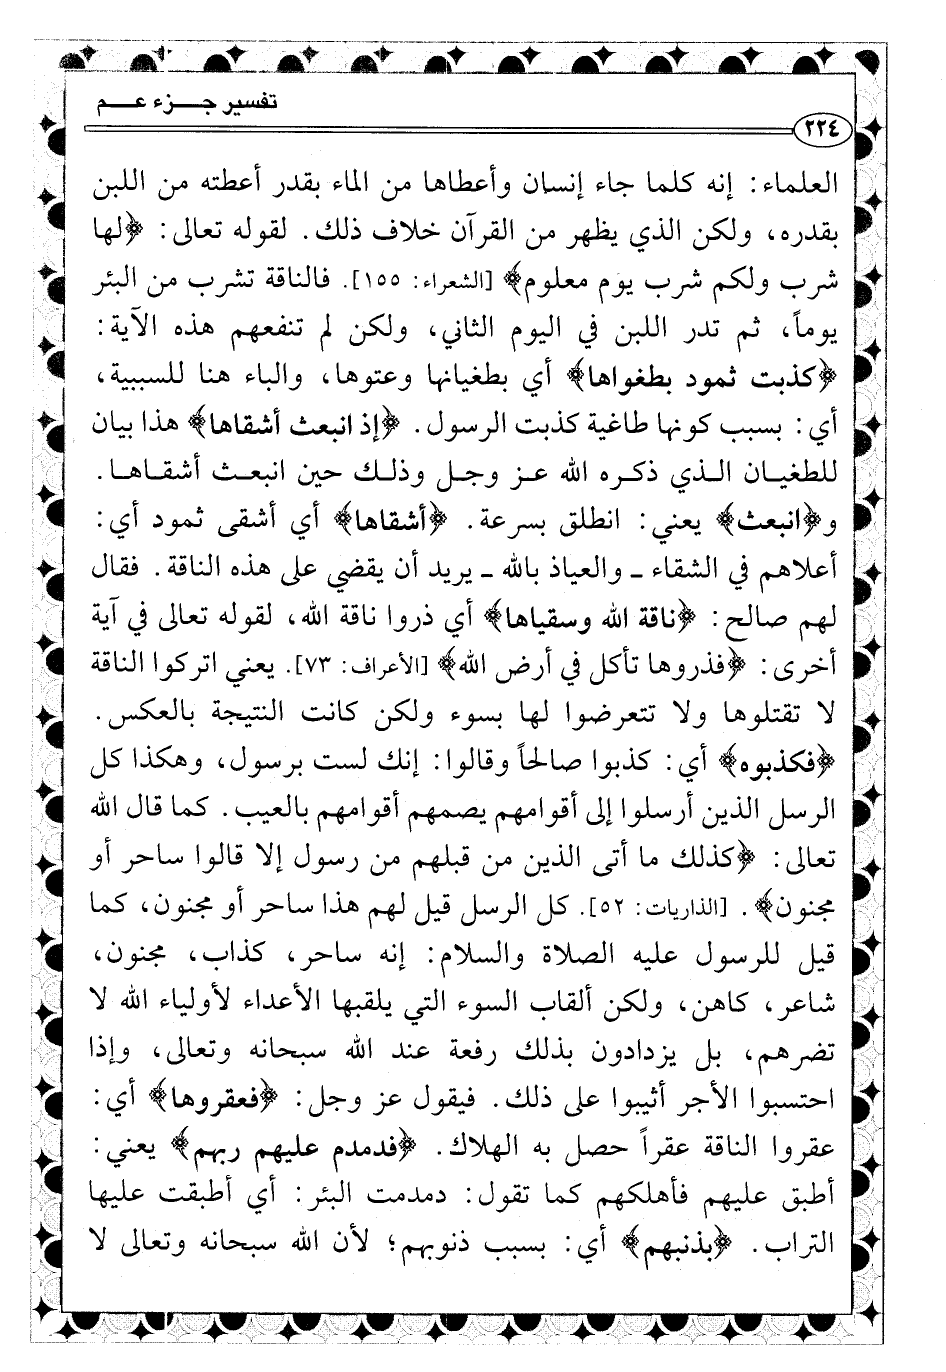 تفسير جزء عم
٢٢٤
العلماء: إنه كلما جاء إنسان وأعطاها من الماء بقدر أعطته من اللبن
بقدره، ولكن الذي يظهر من القرآن خلاف ذلك. لقوله تعالى: ﴿لها
شرب ولكم شرب يوم معلوم﴾ [الشعراء: ١٥٥]. فالناقة تشرب من البئر
يوماً، ثم تدر اللبن في اليوم الثاني، ولكن لم تنفعهم هذه الآية:
﴿كذبت ثمود بطغواها﴾ أي بطغيانها وعتوها، والباء هنا للسببية،
أي: بسبب كونها طاغية كذبت الرسول. ﴿إذ انبعث أشقاها﴾ هذا بيان
للطغيان الذي ذكره الله عز وجل وذلك حين انبعث أشقاها.
و﴿انبعث﴾ يعني: انطلق بسرعة. ﴿أشقاها﴾ أي أشقى ثمود أي:
أعلاهم في الشقاء ـ والعياذ بالله ـ يريد أن يقضي على هذه الناقة. فقال
لهم صالح: ﴿ناقة الله وسقياها﴾ أي ذروا ناقة الله، لقوله تعالى في آية
أخرى: ﴿فذروها تأكل في أرض الله﴾ [الأعراف: ٧٣]. يعني اتركوا الناقة
لا تقتلوها ولا تتعرضوا لها بسوء ولكن كانت النتيجة بالعكس.
﴿فكذبوه﴾ أي: كذبوا صالحاً وقالوا: إنك لست برسول، وهكذا كل
الرسل الذين أرسلوا إلى أقوامهم يصمهم أقوامهم بالعيب. كما قال الله
تعالى: ﴿كذلك ما أتى الذين من قبلهم من رسول إلا قالوا ساحر أو
مجنون﴾. [الذاريات: ٥٢]. كل الرسل قيل لهم هذا ساحر أو مجنون، كما
قيل للرسول عليه الصلاة والسلام: إنه ساحر، كذاب، مجنون،
شاعر، كاهن، ولكن ألقاب السوء التي يلقبها الأعداء لأولياء الله لا
تضرهم، بل يزدادون بذلك رفعة عند الله سبحانه وتعالى، وإذا
احتسبوا الأجر أثيبوا على ذلك. فيقول عز وجل: ﴿فعقروها﴾ أي:
عقروا الناقة عقراً حصل به الهلاك. ﴿فدمدم عليهم ربهم﴾ يعني:
أطبق عليهم فأهلكهم كما تقول: دمدمت البئر: أي أطبقت عليها
التراب. ﴿بذنبهم﴾ أي: بسبب ذنوبهم؛ لأن الله سبحانه وتعالى لا